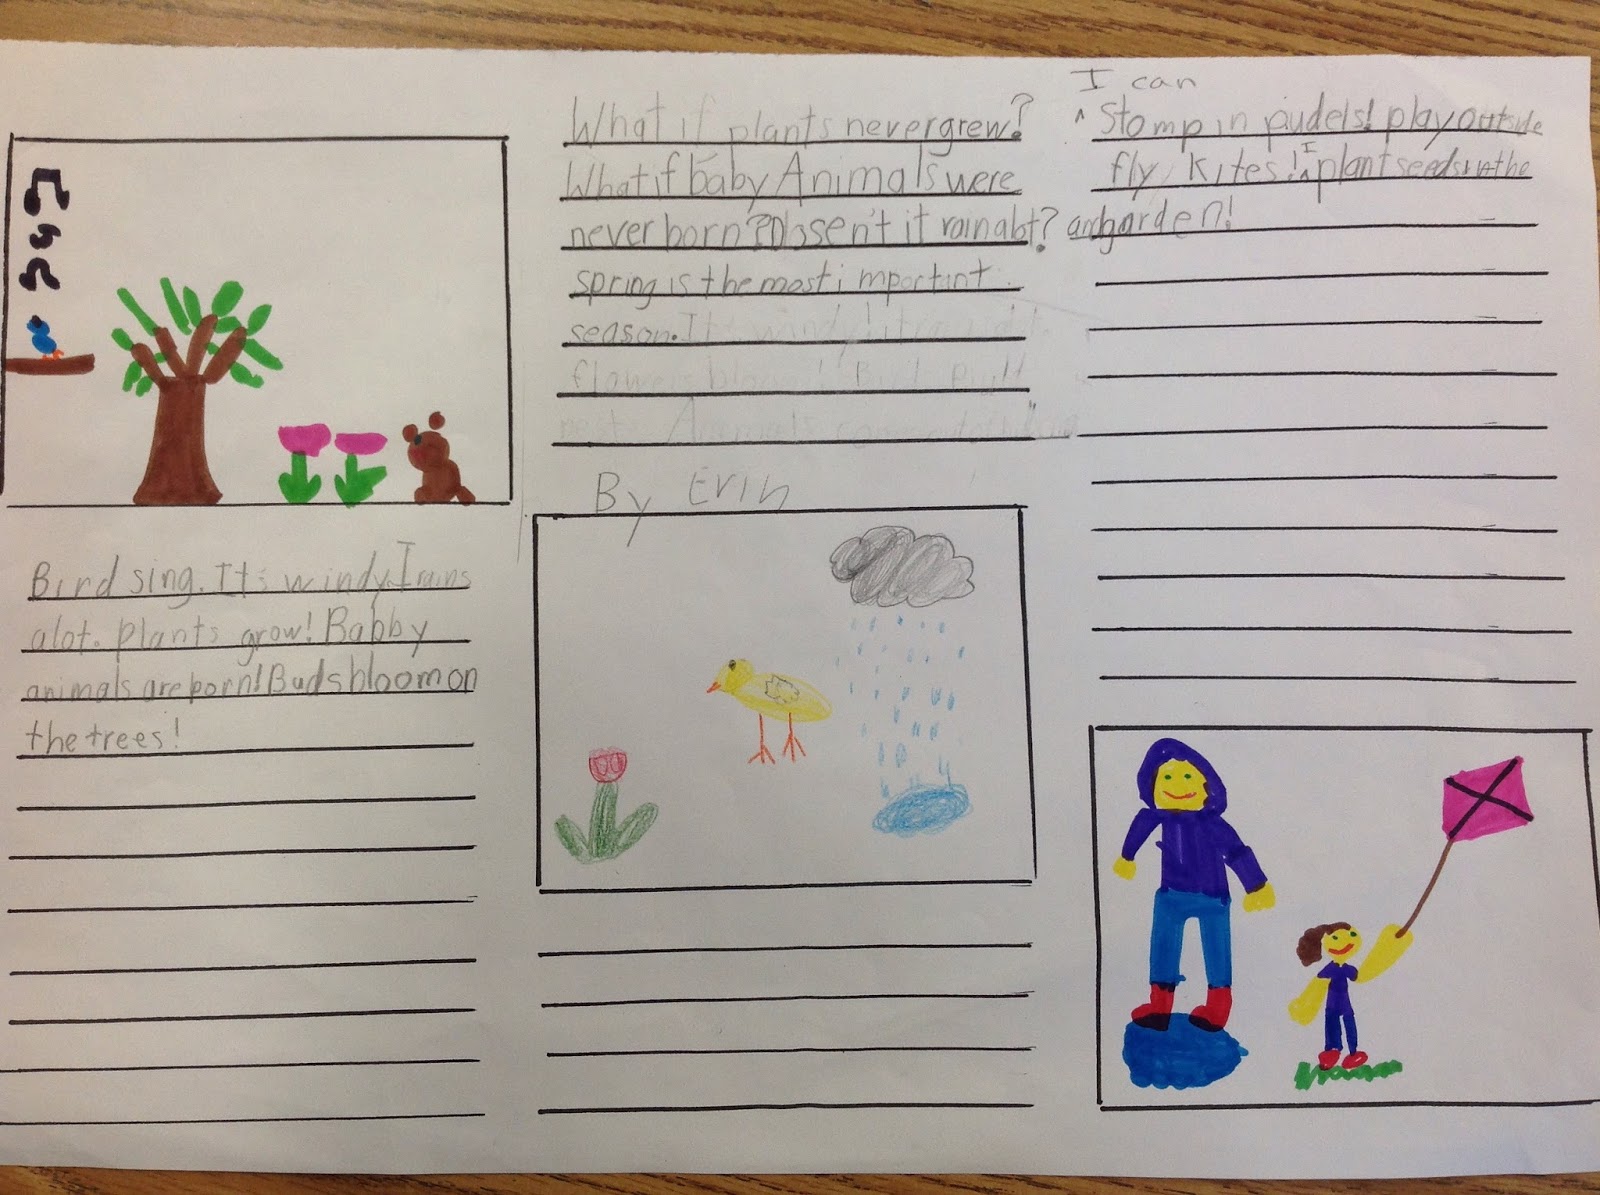 Bird sing. It's windy. I rains
alot. Plants grow! Babby
animals are born! Buds bloom on
the trees!
What if plants never grew?
What if baby Animals were
never born? Dosen't it rain alot?
spring is the most important
season. It's windy! it
flowers bloom! Bird
nest. Animals
By Erin
I can
^ Stomp in pudels! play outside
fly kites! I ^ plant seeds in the
garden!